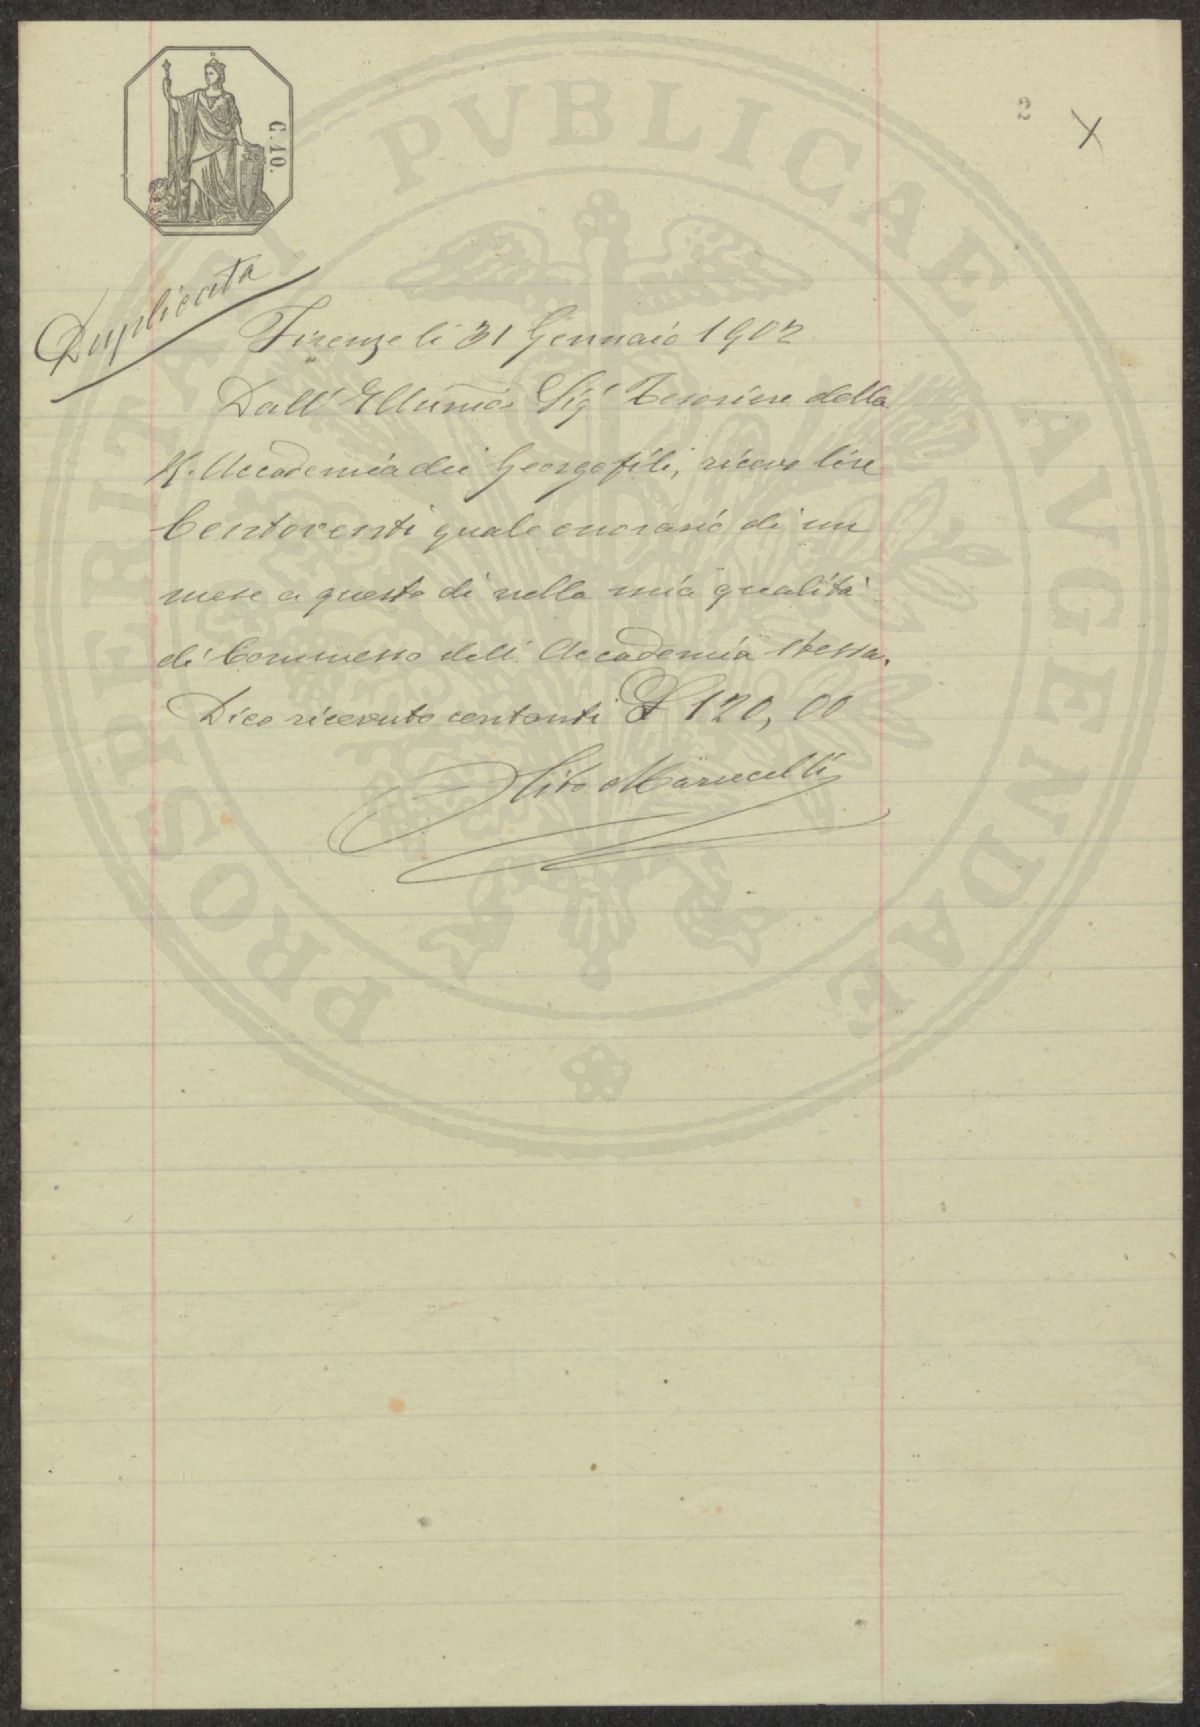 C. 10.
2
X
Duplicata
Firenze li 31 Gennaio 1902
Dall' Illumo Sigr Tesoriere della
R. Accademia dei Georgofili, ricevo lire
Centoventi quale onorario di un
mese a questo dì nella mia qualità
di Commesso dell' Accademia stessa.
Dico ricevuto contanti £ 120,00
Marucelli
PROSPERITATI PVBLICAE AVGENDAE